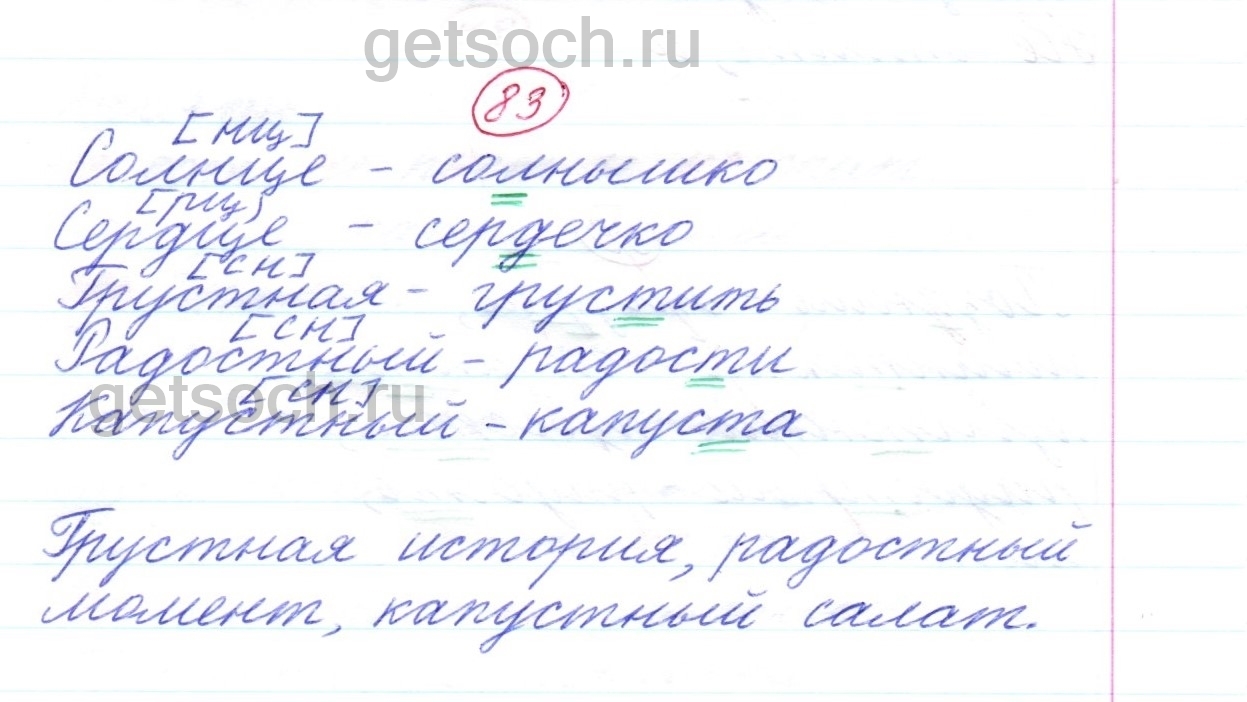 getsoch.ru
83
[нц]
Солнце - солнышко
[рц]
Сердце - сердечко
[сн]
Грустная - грустить
[сн]
Радостный - радости
getsoch.ru
[сн]
Капустный - капуста
Грустная история, радостный
момент, капустный салат.